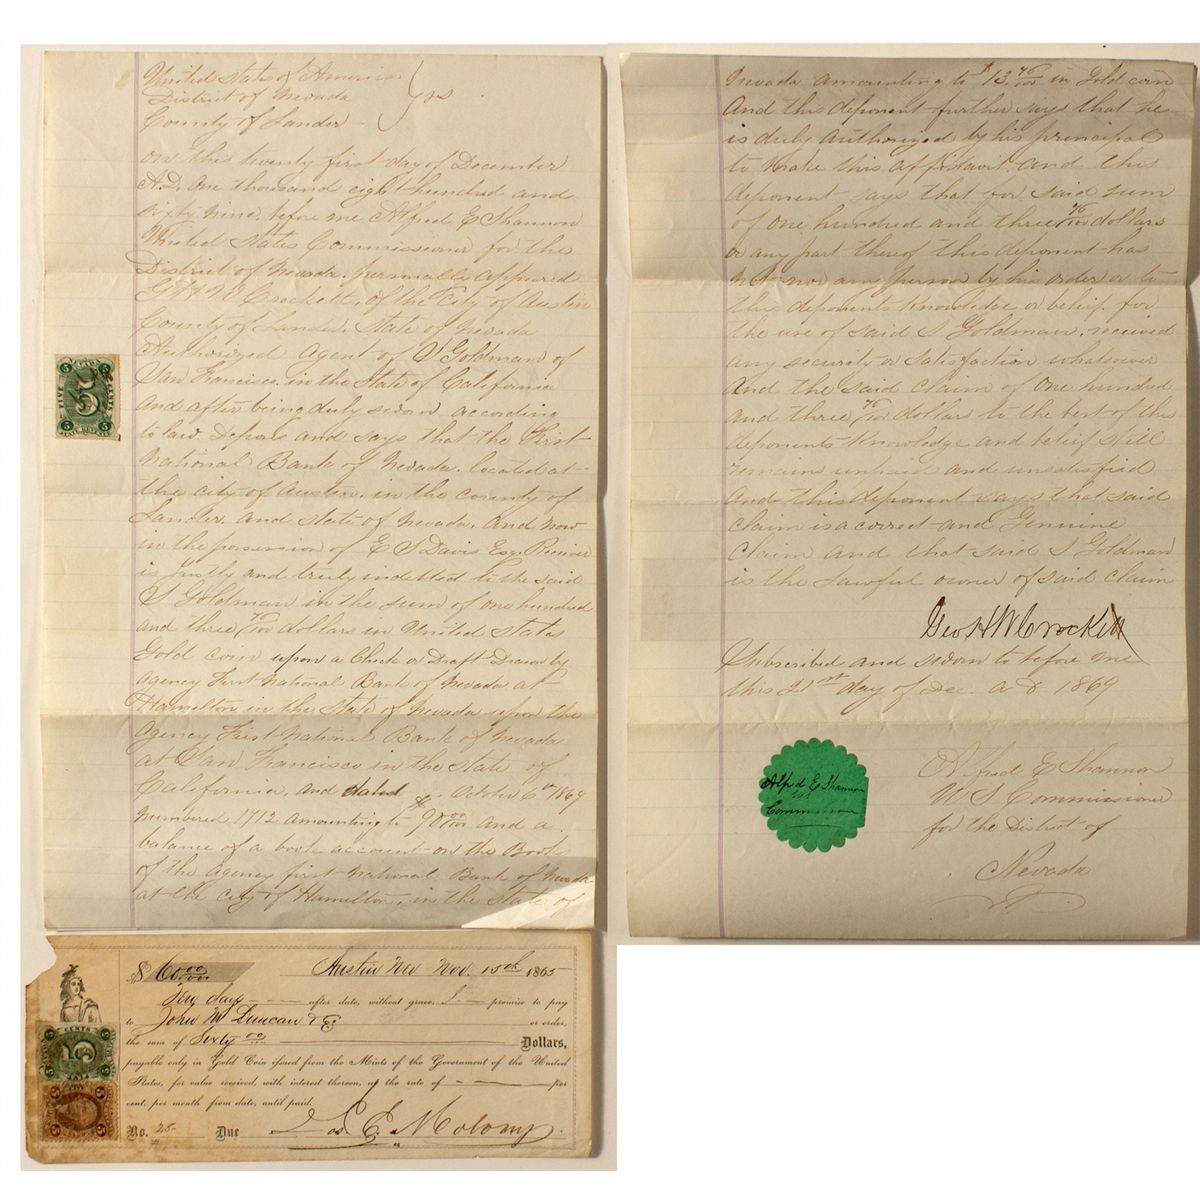 United States of America
District of Nevada } ss
County of Lander
On this twenty first day of December
A.D. One thousand eight hundred and
sixty nine, before me Alfred E Shannon
United States Commissioner for the
District of Nevada, personally appeared
G H W Crockett, of the City of Austin
County of Lander, State of Nevada
Authorized Agent of S Goldman of
San Francisco, in the State of California
and after being duly sworn according
to law. Deposes and says that the First
National Bank of Nevada, located at
the city of Austin, in the county of
Lander, and state of Nevada, and now
in the possession of E S Davis Esq. Receiver
is justly and truly indebted to the said
S Goldman in the sum of one hundred
and three 46/100 dollars in United States
Gold coin upon a Check or Draft Drawn by
Agency First National Bank of Nevada at
Hamilton in the State of Nevada upon the
Agency First National Bank of Nevada
at San Francisco in the State of
California, and dated October 6th 1869
Numbered 1712 amounting to $90 00/100 and a
balance of a book account on the Book
of the Agency first National Bank of Nevada
at the city of Hamilton, in the State of
FIVE CENTS
5
Nevada amounting to $13 46/100 in Gold coin
And this deponent further says that he
is duly authorized by his principal
to make this affidavit and this
deponent says that for said sum
of one hundred and three 46/100 dollars
or any part thereof this deponent has
not nor any person by his order or to
this deponents knowledge or belief for
the use of said S Goldman, received
any security or satisfaction whatsoever
And the said claim of One hundred
and three 46/100 dollars to the best of this
deponents knowledge and belief still
remains unpaid and unsatisfied
And this deponent says that said
claim is a correct and Genuine
claim and that said S Goldman
is the lawful owner of said claim
Geo H W Crockett
Subscribed and sworn to before me
this 21st day of Dec. A D 1869
Alfred E Shannon
U S Commissioner
for the District of
Nevada
Alfd E Shannon
U S
Commissioner
$ 60 00/100 Austin Nev Nov. 15th 1865
Ten days after date, without grace, I promise to pay
to John M Duncan & Co or order,
the sum of Sixty 00/100 Dollars,
payable only in Gold Coin issued from the Mints of the Government of the United
States, for value received, with interest thereon, at the rate of per
cent. per month from date, until paid.
No. 25 Due Jas. E. Molony
CENTS
5
5